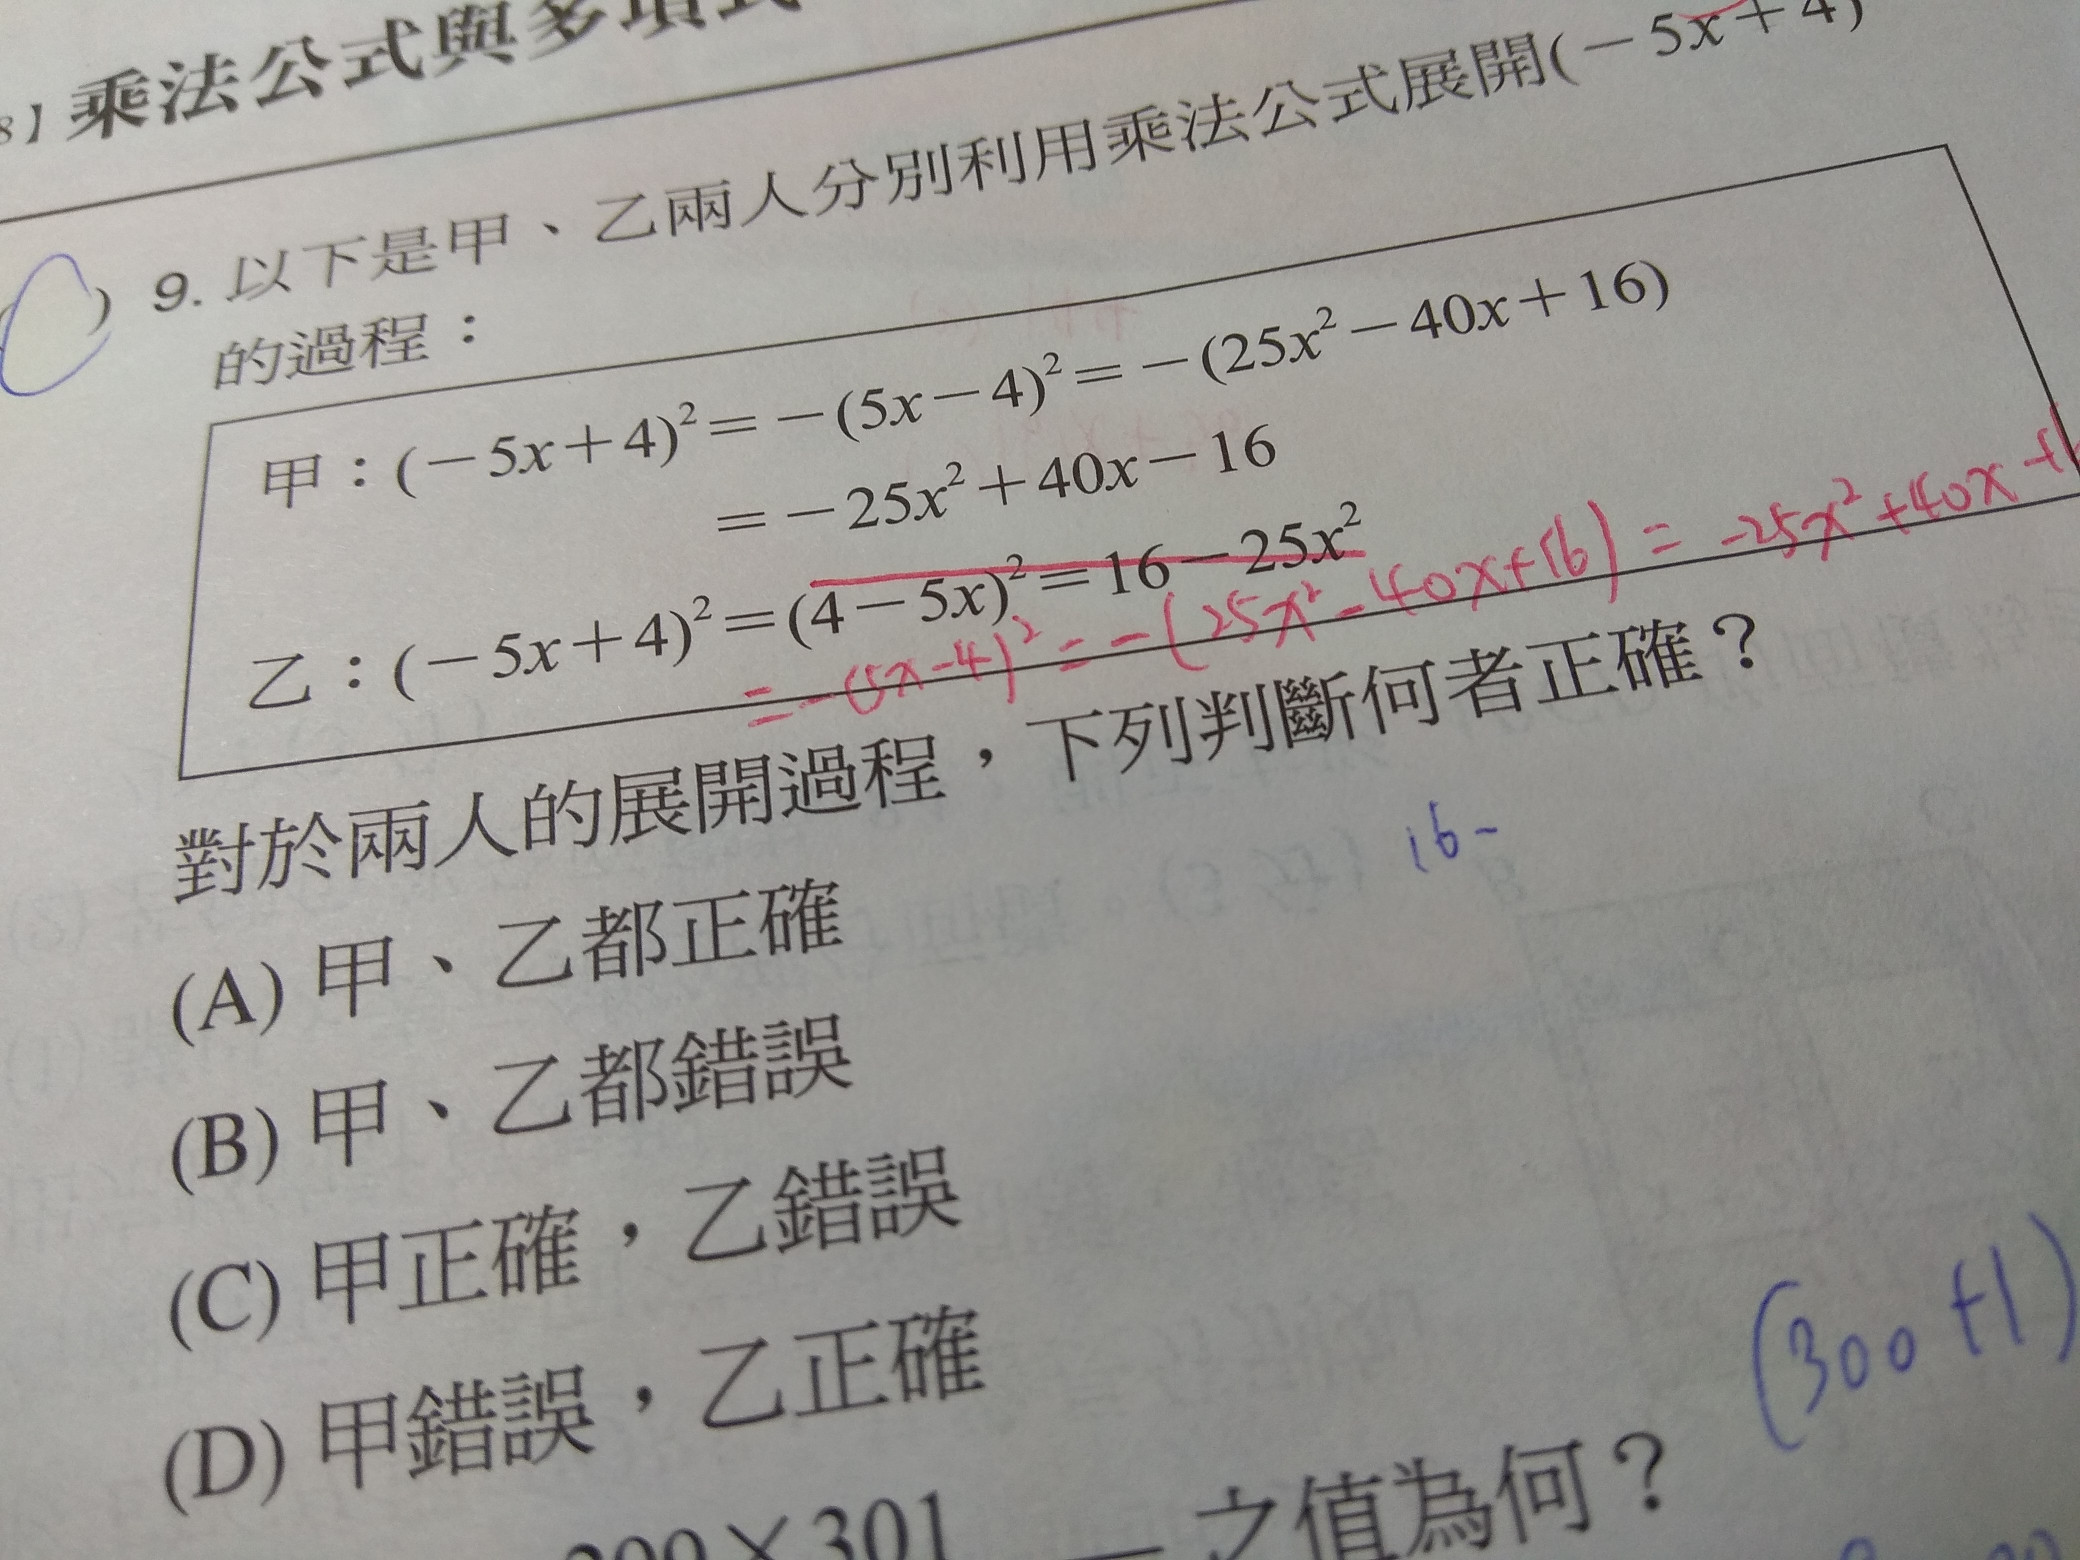 8】乘法公式與多項式
9. 以下是甲、乙兩人分別利用乘法公式展開(－5x＋4)
的過程：
甲：(－5x＋4)²＝－(5x－4)²＝－(25x²－40x＋16)
＝－25x²＋40x－16
乙：(－5x＋4)²＝(4－5x)²＝16－25x²
=-(5x-4)²=-(25x²-40x+16)=-25x²+40x
對於兩人的展開過程，下列判斷何者正確？
16-
(A) 甲、乙都正確
(B) 甲、乙都錯誤
(C) 甲正確，乙錯誤
(D) 甲錯誤，乙正確
(300+1)
×301
之值為何？